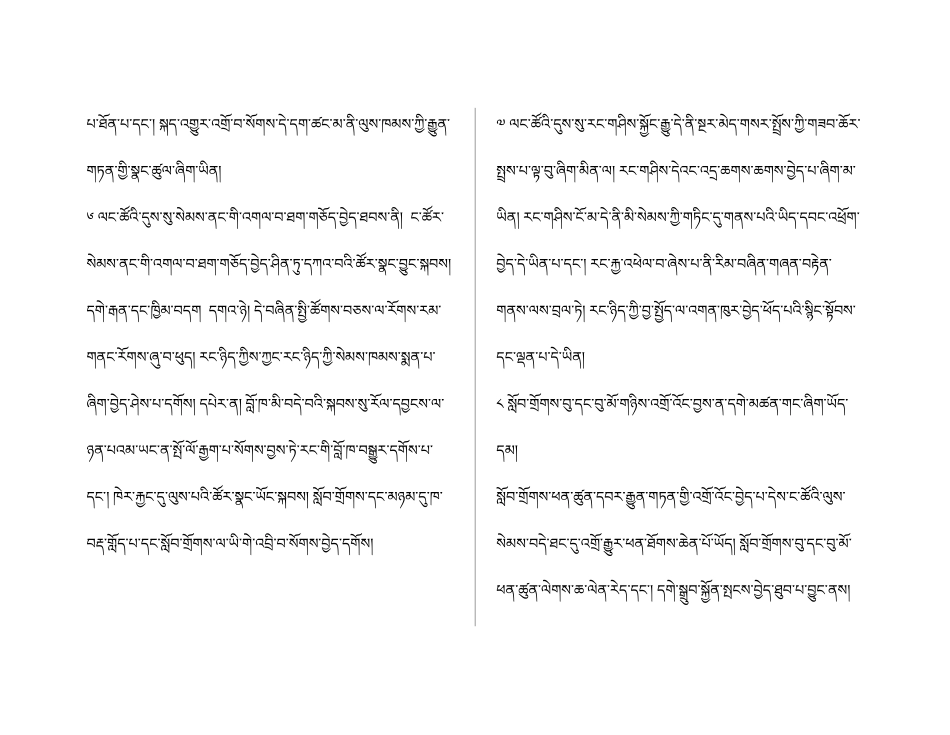 པ་ཐོན་པ་དང་། སྐད་འགྱུར་འགྲོ་བ་སོགས་དེ་དག་ཚང་མ་ནི་ལུས་ཁམས་ཀྱི་རྒྱུན་
གཏན་གྱི་སྣང་ཚུལ་ཞིག་ཡིན།
༦ ལང་ཚོའི་དུས་སུ་སེམས་ནང་གི་འགལ་བ་ཐག་གཅོད་བྱེད་ཐབས་ནི།  ང་ཚོར་
སེམས་ནང་གི་འགལ་བ་ཐག་གཅོད་བྱེད་ཤིན་ཏུ་དཀའ་བའི་ཚོར་སྣང་བྱུང་སྐབས།
དགེ་རྒན་དང་ཁྱིམ་བདག  དགའ་ཉེ། དེ་བཞིན་སྤྱི་ཚོགས་བཅས་ལ་རོགས་རམ་
གནང་རོགས་ཞུ་བ་ཕུད། རང་ཉིད་ཀྱིས་ཀྱང་རང་ཉིད་ཀྱི་སེམས་ཁམས་སྨན་པ་
ཞིག་བྱེད་ཤེས་པ་དགོས། དཔེར་ན། བློ་ཁ་མི་བདེ་བའི་སྐབས་སུ་རོལ་དབྱངས་ལ་
ཉན་པའམ་ཡང་ན་སྤོ་ལོ་རྒྱག་པ་སོགས་བྱས་ཏེ་རང་གི་བློ་ཁ་བསྒྱུར་དགོས་པ་
དང་། ཁེར་རྐྱང་དུ་ལུས་པའི་ཚོར་སྣང་ཡོང་སྐབས། སློབ་གྲོགས་དང་མཉམ་དུ་ཁ་
བརྡ་གློད་པ་དང་སློབ་གྲོགས་ལ་ཡི་གེ་འབྲི་བ་སོགས་བྱེད་དགོས།
༧ ལང་ཚོའི་དུས་སུ་རང་གཤིས་སྐྱོང་རྒྱུ་དེ་ནི་སྔར་མེད་གསར་སྤྲོས་ཀྱི་གཟབ་ཆོར་
སྤྲས་པ་ལྟ་བུ་ཞིག་མིན་ལ། རང་གཤིས་དེའང་འདྲ་ཆགས་ཆགས་བྱེད་པ་ཞིག་མ་
ཡིན། རང་གཤིས་ངོ་མ་དེ་ནི་མི་སེམས་ཀྱི་གཏིང་དུ་གནས་པའི་ཡིད་དབང་འཕྲོག་
བྱེད་དེ་ཡིན་པ་དང་། རང་རྐྱ་འཕེལ་བ་ཞེས་པ་ནི་རིམ་བཞིན་གཞན་བརྟེན་
གནས་ལས་བྲལ་ཏེ། རང་ཉིད་ཀྱི་བྱ་སྤྱོད་ལ་འགན་ཁུར་བྱེད་ཕོད་པའི་སྙིང་སྟོབས་
དང་ལྡན་པ་དེ་ཡིན།
༨ སློབ་གྲོགས་བུ་དང་བུ་མོ་གཉིས་འགྲོ་འོང་བྱས་ན་དགེ་མཚན་གང་ཞིག་ཡོད་
དམ།
སློབ་གྲོགས་ཕན་ཚུན་དབར་རྒྱུན་གཏན་གྱི་འགྲོ་འོང་བྱེད་པ་དེས་ང་ཚོའི་ལུས་
སེམས་བདེ་ཐང་དུ་འགྲོ་རྒྱུར་ཕན་ཐོགས་ཆེན་པོ་ཡོད། སློབ་གྲོགས་བུ་དང་བུ་མོ་
ཕན་ཚུན་ལེགས་ཆ་ལེན་རེད་དང་། དགེ་སྒྲུབ་སྐྱོན་སྤངས་བྱེད་ཐུབ་པ་བྱུང་ནས།